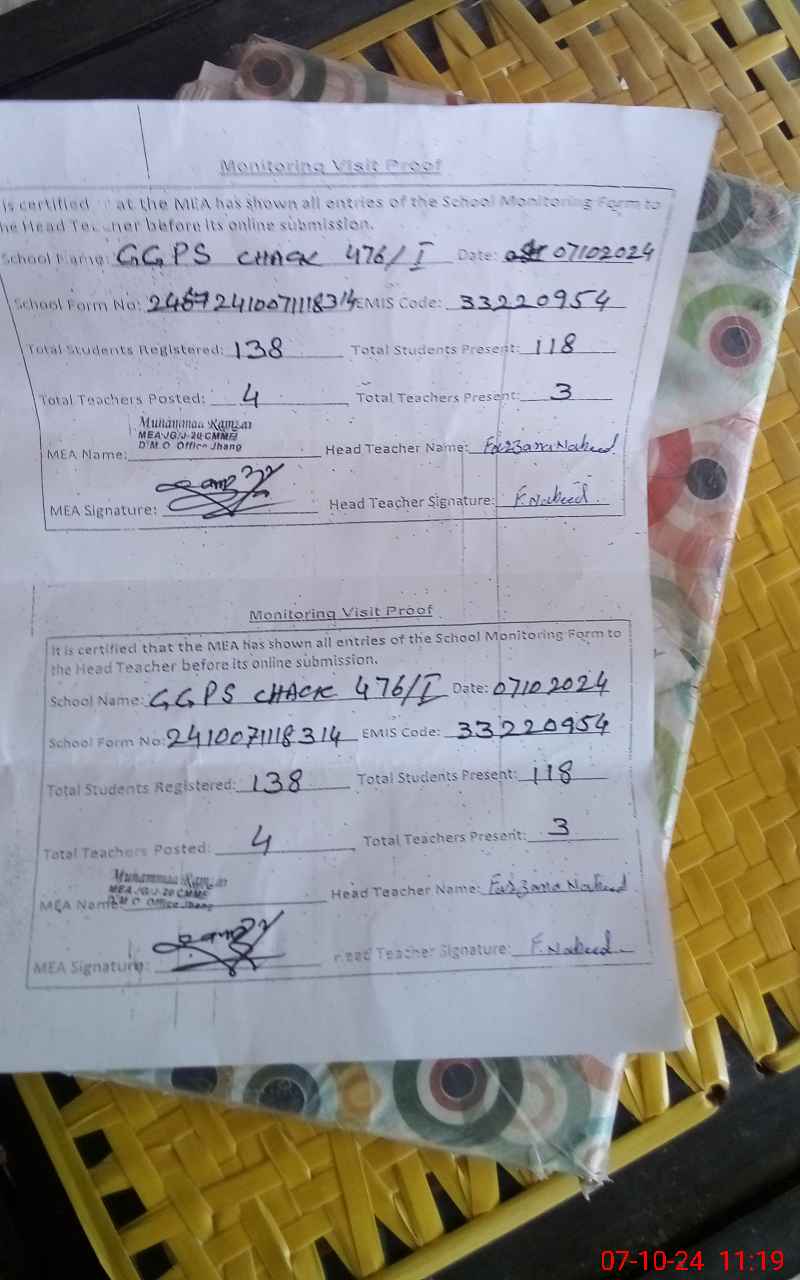 Monitoring Visit Proof
is certified at the MEA has shown all entries of the School Monitoring Form to
he Head Teacher before its online submission.
School Name: GGPS CHACK 476/I Date: 07102024
School Form No: 2410071118314 EMIS Code: 33220954
Total Students Registered: 138 Total Students Present: 118
Total Teachers Posted: 4 Total Teachers Present: 3
Muhammad Ramzan
MEA JG/J-20 CMMF
D.M.O Office Jhang
MEA Name: Head Teacher Name: Farzana Naheed
MEA Signature: Head Teacher Signature: F.Naheed
Monitoring Visit Proof
It is certified that the MEA has shown all entries of the School Monitoring Form to
the Head Teacher before its online submission.
School Name: GGPS CHACK 476/I Date: 07102024
School Form No: 2410071118314 EMIS Code: 33220954
Total Students Registered: 138 Total Students Present: 118
Total Teachers Posted: 4 Total Teachers Present: 3
Muhammad Ramzan
MEA JG/J-20 CMMF
D.M.O Office Jhang
MEA Name: Head Teacher Name: Farzana Naheed
MEA Signature: Head Teacher Signature: F.Naheed
07-10-24 11:19